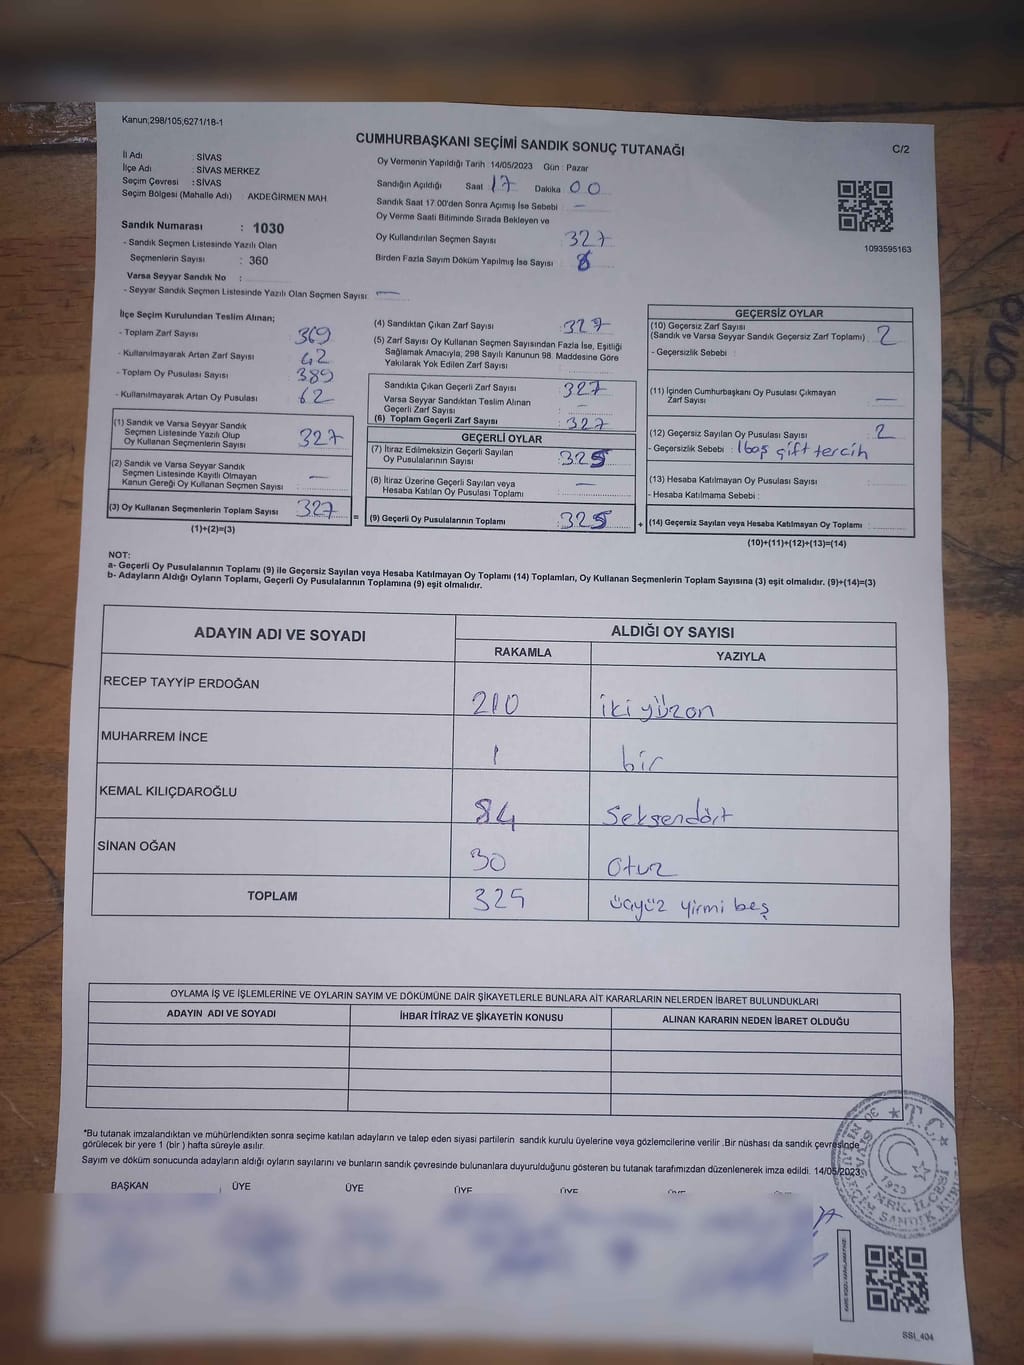 Kanun;298/105;6271/18-1
CUMHURBAŞKANI SEÇİMİ SANDIK SONUÇ TUTANAĞI
C/2
İl Adı : SİVAS
İlçe Adı : SİVAS MERKEZ
Seçim Çevresi : SİVAS
Seçim Bölgesi (Mahalle Adı) : AKDEĞİRMEN MAH
Oy Vermenin Yapıldığı Tarih :14/05/2023 Gün : Pazar
Sandığın Açıldığı Saat 17 Dakika 00
Sandık Saat 17.00'den Sonra Açımış İse Sebebi —
Oy Verme Saati Bitiminde Sırada Bekleyen ve
Oy Kullandırılan Seçmen Sayısı 327
Birden Fazla Sayım Döküm Yapılmış İse Sayısı
1093595163
Sandık Numarası : 1030
- Sandık Seçmen Listesinde Yazılı Olan
Seçmenlerin Sayısı : 360
Varsa Seyyar Sandık No :
- Seyyar Sandık Seçmen Listesinde Yazılı Olan Seçmen Sayısı: —
İlçe Seçim Kurulundan Teslim Alınan;
- Toplam Zarf Sayısı 369
- Kullanılmayarak Artan Zarf Sayısı 42
- Toplam Oy Pusulası Sayısı 389
- Kullanılmayarak Artan Oy Pusulası 62
(1) Sandık ve Varsa Seyyar Sandık
Seçmen Listesinde Yazılı Olup
Oy Kullanan Seçmenlerin Sayısı 327
(2) Sandık ve Varsa Seyyar Sandık
Seçmen Listesinde Kayıtlı Olmayan
Kanun Gereği Oy Kullanan Seçmen Sayısı —
(3) Oy Kullanan Seçmenlerin Toplam Sayısı 327
(1)+(2)=(3)
(4) Sandıktan Çıkan Zarf Sayısı : 327
(5) Zarf Sayısı Oy Kullanan Seçmen Sayısından Fazla İse, Eşitliği
Sağlamak Amacıyla, 298 Sayılı Kanunun 98. Maddesine Göre
Yakılarak Yok Edilen Zarf Sayısı
Sandıkta Çıkan Geçerli Zarf Sayısı : 327
Varsa Seyyar Sandıktan Teslim Alınan
Geçerli Zarf Sayısı : —
(6) Toplam Geçerli Zarf Sayısı : 327
GEÇERLİ OYLAR
(7) İtiraz Edilmeksizin Geçerli Sayılan
Oy Pusulalarının Sayısı : 325
(8) İtiraz Üzerine Geçerli Sayılan veya
Hesaba Katılan Oy Pusulası Toplamı : —
= (9) Geçerli Oy Pusulalarının Toplamı : 325
GEÇERSİZ OYLAR
(10) Geçersiz Zarf Sayısı
(Sandık ve Varsa Seyyar Sandık Geçersiz Zarf Toplamı) : 2
- Geçersizlik Sebebi :
(11) İçinden Cumhurbaşkanı Oy Pusulası Çıkmayan
Zarf Sayısı : —
(12) Geçersiz Sayılan Oy Pusulası Sayısı : 2
- Geçersizlik Sebebi : 1boş çift tercih
(13) Hesaba Katılmayan Oy Pusulası Sayısı :
- Hesaba Katılmama Sebebi :
+ (14) Geçersiz Sayılan veya Hesaba Katılmayan Oy Toplamı :
(10)+(11)+(12)+(13)=(14)
NOT:
a- Geçerli Oy Pusulalarının Toplamı (9) ile Geçersiz Sayılan veya Hesaba Katılmayan Oy Toplamı (14) Toplamları, Oy Kullanan Seçmenlerin Toplam Sayısına (3) eşit olmalıdır. (9)+(14)=(3)
b- Adayların Aldığı Oyların Toplamı, Geçerli Oy Pusulalarının Toplamına (9) eşit olmalıdır.
ADAYIN ADI VE SOYADI
ALDIĞI OY SAYISI
RAKAMLA YAZIYLA
RECEP TAYYİP ERDOĞAN 210 iki yüzon
MUHARREM İNCE 1 bir
KEMAL KILIÇDAROĞLU 84 Seksendört
SİNAN OĞAN 30 Otuz
TOPLAM 325 üçyüz yirmi beş
OYLAMA İŞ VE İŞLEMLERİNE VE OYLARIN SAYIM VE DÖKÜMÜNE DAİR ŞİKAYETLERLE BUNLARA AİT KARARLARIN NELERDEN İBARET BULUNDUKLARI
ADAYIN ADI VE SOYADI İHBAR İTİRAZ VE ŞİKAYETİN KONUSU ALINAN KARARIN NEDEN İBARET OLDUĞU
*Bu tutanak imzalandıktan ve mühürlendikten sonra seçime katılan adayların ve talep eden siyasi partilerin sandık kurulu üyelerine veya gözlemcilerine verilir .Bir nüshası da sandık çevresinde
görülecek bir yere 1 (bir ) hafta süreyle asılır.
Sayım ve döküm sonucunda adayların aldığı oyların sayılarını ve bunların sandık çevresinde bulunanlara duyurulduğunu gösteren bu tutanak tarafımızdan düzenlenerek imza edildi. 14/05/2023
BAŞKAN ÜYE ÜYE ÜYE ÜYE
T.C.
1923
SSI_404